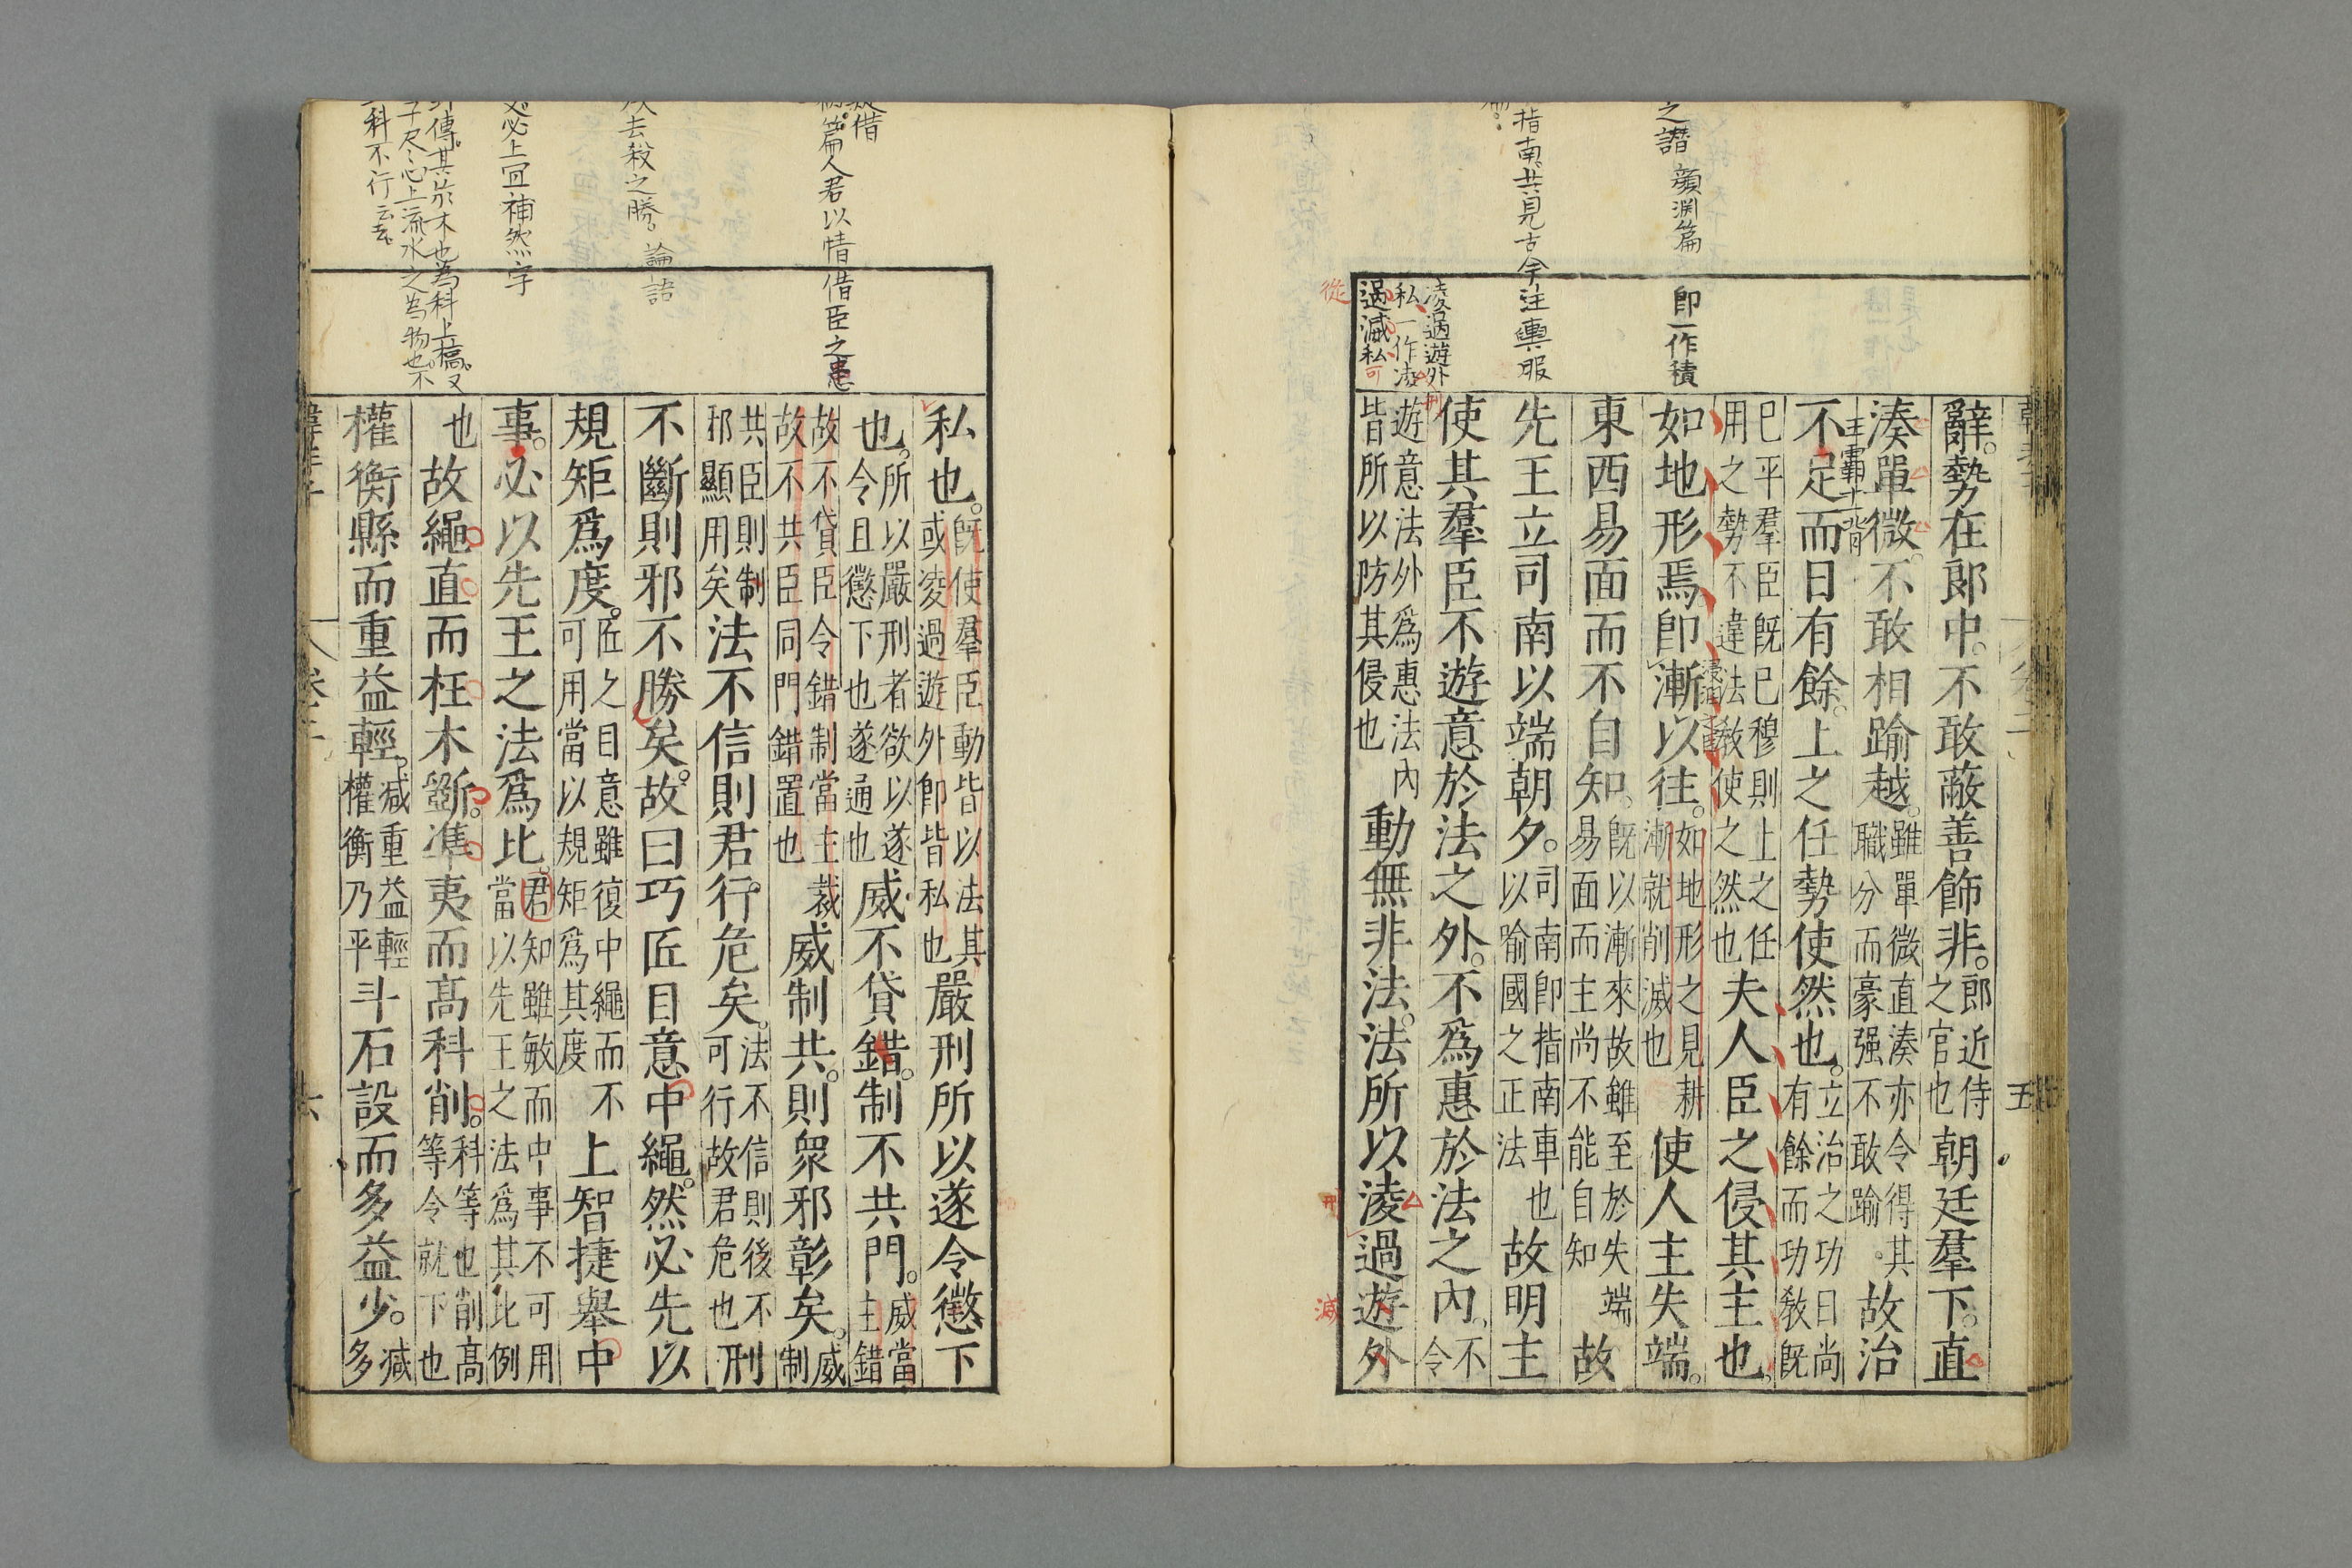 辭。勢在郎中。不敢蔽善飾非。郎近侍之官也朝廷羣下。直
湊單微。不敢相踰越。雖單微直湊亦令得其職分而豪强不敢踰。故治
不足而日有餘。上之任勢使然也。立治之功日尚有餘而功敎旣
已平羣臣旣已穆則上之任用之勢不違法敎使之然也夫人臣之侵其主也。
如地形焉。卽漸以往。如地形之見耕漸就削滅也使人主失端。
東西易面而不自知。旣以漸來故雖至於失端易面而主尚不能自知故
先王立司南以端朝夕。司南卽指南車也以喻國之正法故明主
使其羣臣不遊意於法之外。不爲惠於法之內。不令
遊意法外爲惠法內皆所以防其侵也動無非法。法所以淩過遊外
卽一作積
淩過遊外
私一作淩
過滅私可
之譖 顏淵篇
指南共見古今注輿服
從
刑
滅
五
私也。旣使羣臣動皆以法其或淩過遊外卽皆私也嚴刑所以遂令懲下
也。所以嚴刑者欲以遂令且懲下也遂通也威不貸錯。制不共門。威當主錯
故不貸臣令錯制當主裁故不共臣同門錯置也威制共。則衆邪彰矣。威制
共臣則制邪顯用矣法不信則君行危矣。法不信則後不可行故君危也刑
不斷則邪不勝矣。故曰巧匠目意中繩。然必先以
規矩爲度。匠之目意雖復中繩而不可用當以規矩爲其度上智捷舉中
事。必以先王之法爲比。君知雖敏而中事不可用當以先王之法爲其比例
也故繩直而枉木斵。準夷而高科削。科等也削高等令就下也
權衡縣而重益輕。減重益輕權衡乃平斗石設而多益少。減多
篇人君以情借臣之患
去殺之勝。論語
必上冝補然字
傳。其於木也為科上槁。又
尽心上流水之為物也。不
科不行云云
六